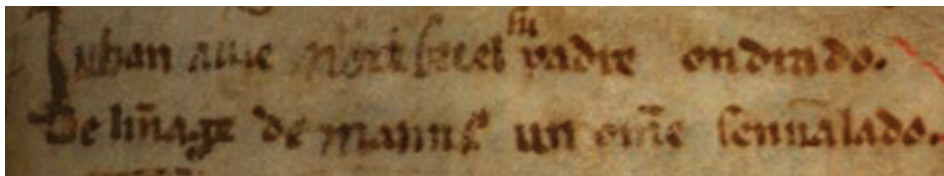 Iuhan avie nonbre el su padre ondrado.
De lin̄age de mannes un om̄e sennalado.